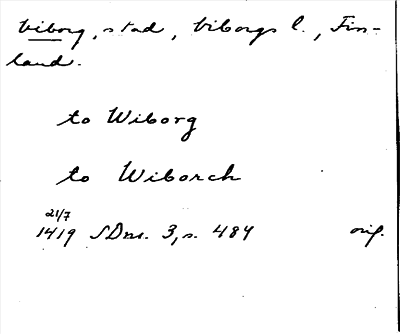 Viborg, stad, Viborgs l., Fin-
land.
to Wiborg
to Wiborch
21/7
1419 SDns. 3, s. 484 orig.